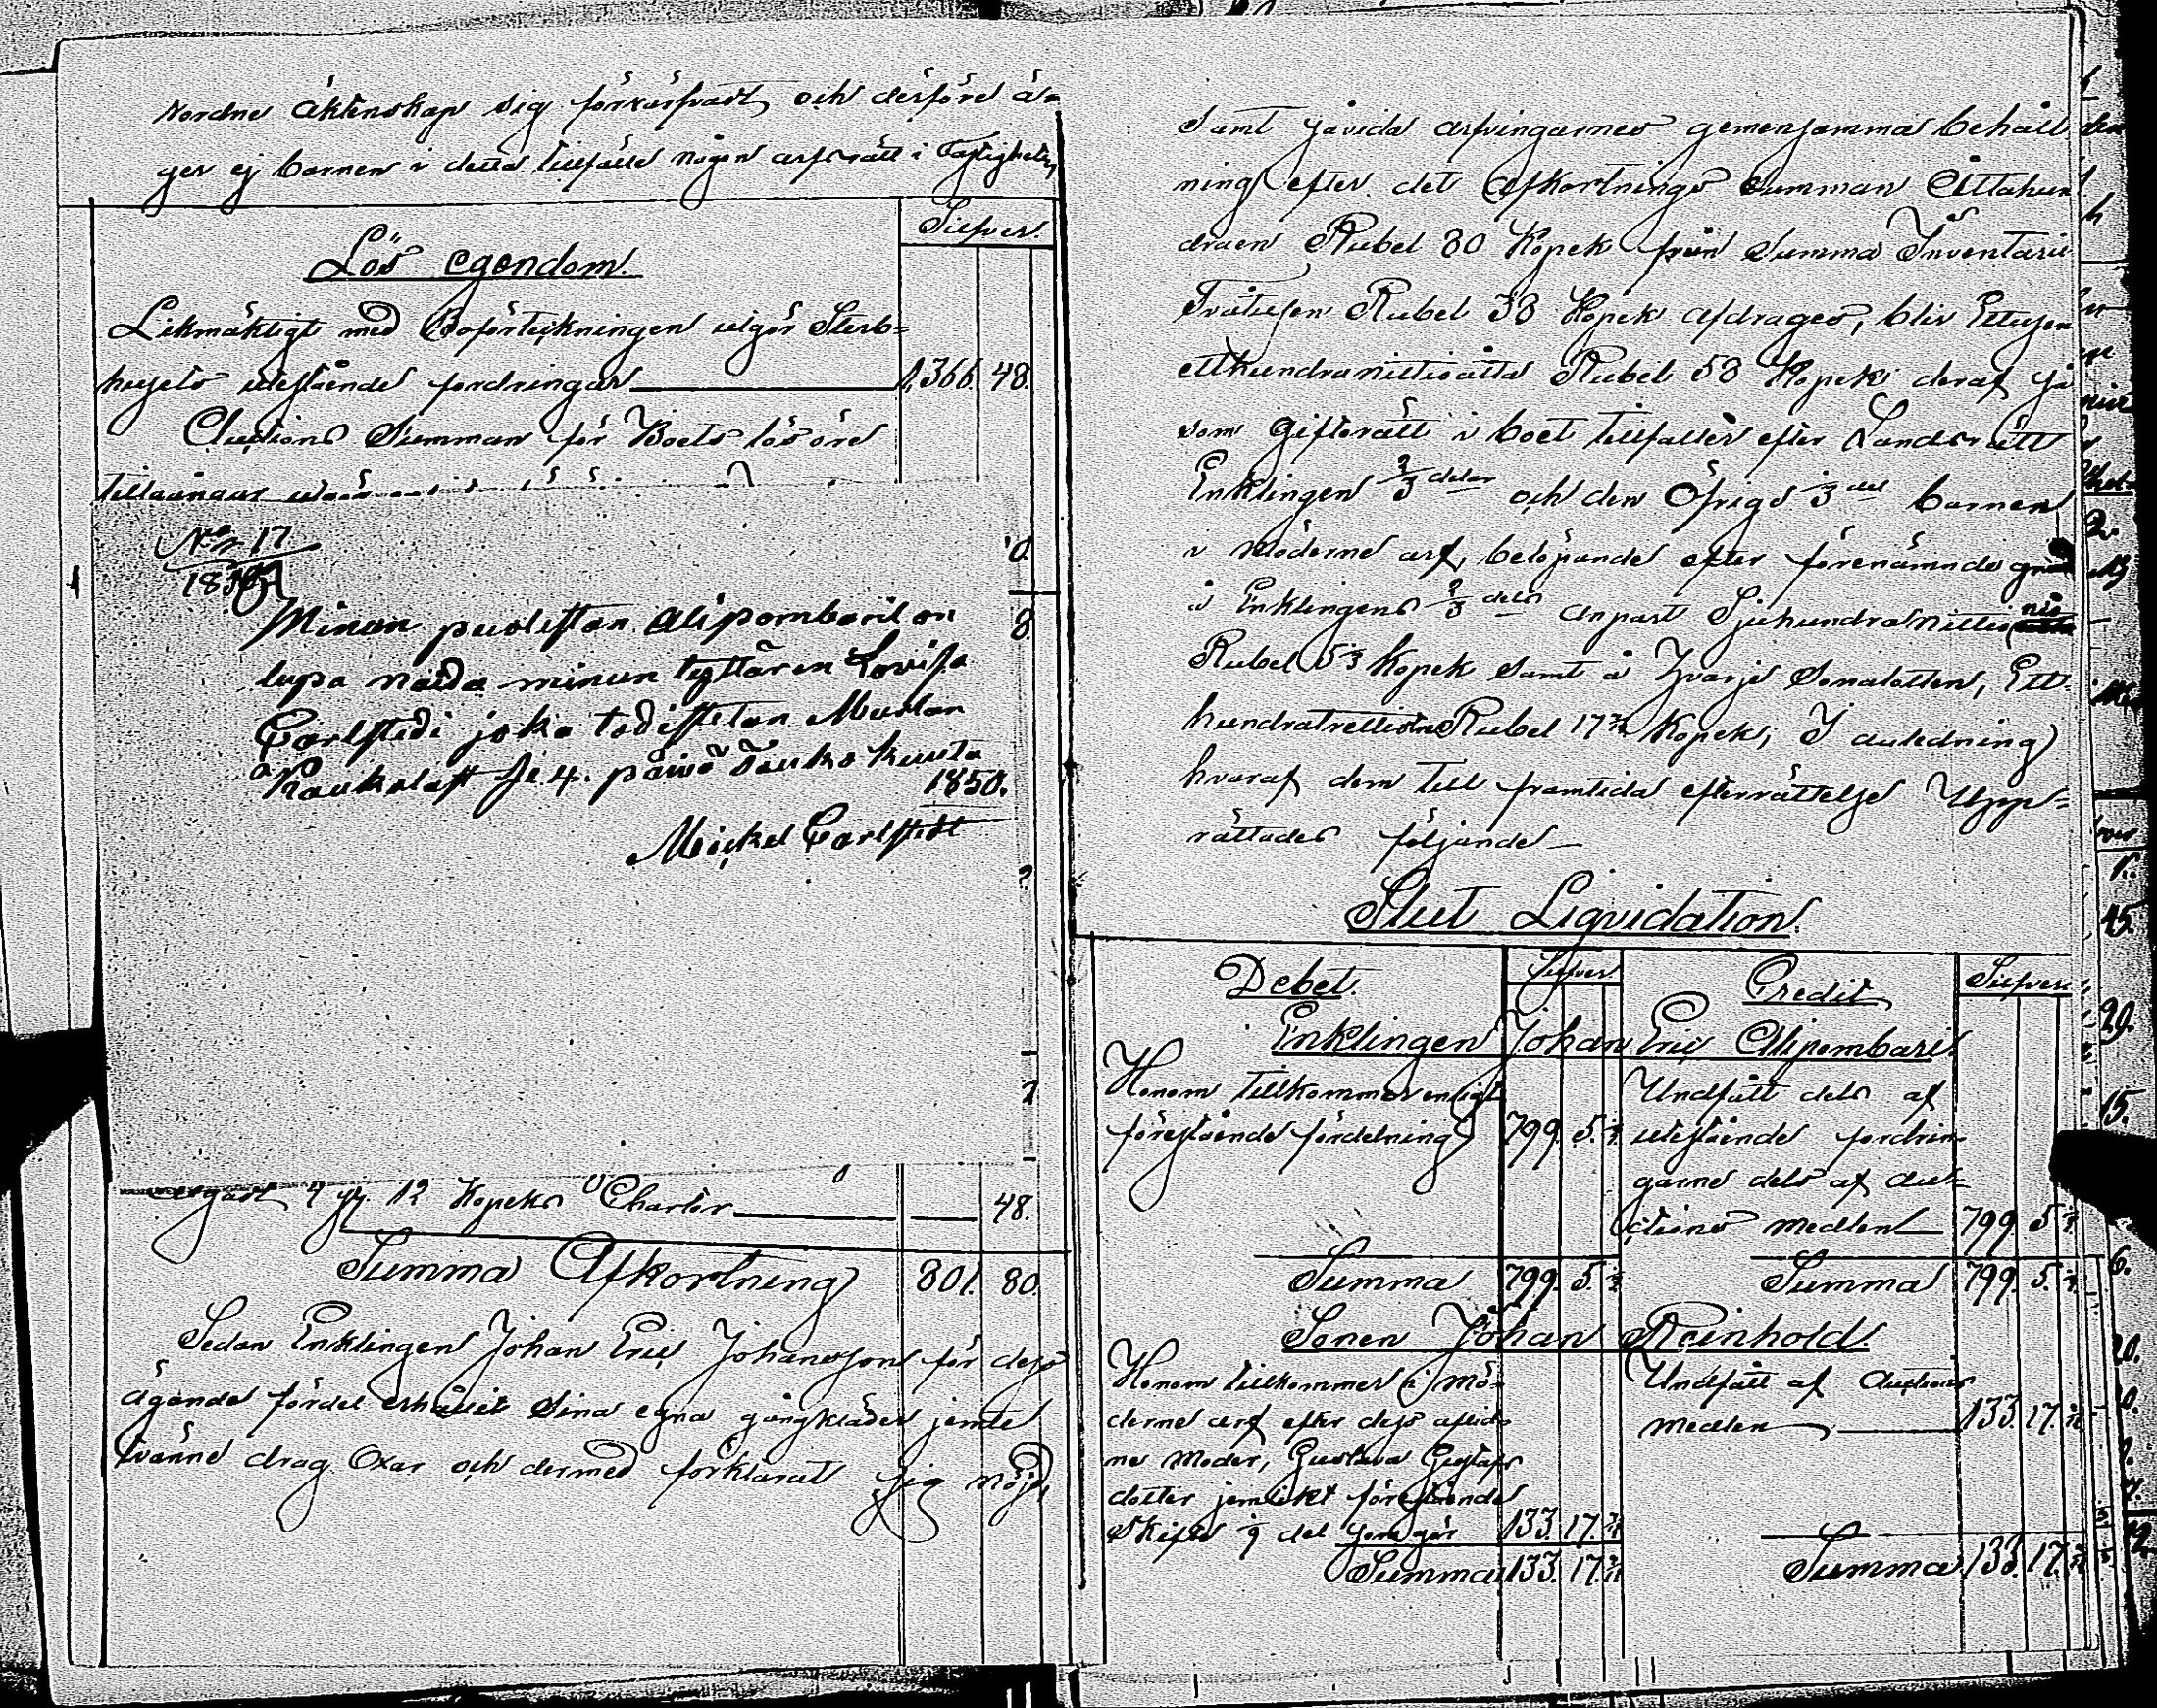 vordne äktenskap sig förvärfvadt, och derföre ä-
ger ej barnen i detta tillfälle någon arfsrätt i Fastigheten
Silfver.
Lös egendom.
Likmäktigt med Boförteckningen utgör Sterb-
husets utestående fordringar 1,366. 48.
Auctions Summan för Boets lösöre
N:o 17
Minun puolestan Alipombaril on
lupa naida minun tyttären Lovisa
Carlstedi joka todistetan Mustan
Kaukelast se 4. päivä Touko kuuta
1850.
Mickel Carlstedt
12 Kopeks Charter 48.
Summa Afkortning 801. 80.
Sedan Enklingen Johan Eric Johansson för dess
ägande fördel erhållit sina egna gångkläder jemte
tvänne drag Oxar och dermed förklarat sig nöjd,
samt såvida arfvingarnes gemensamma behåll
ning efter det Afkortnings summan Åttahun
draen Rubel 80 Kopek från Summa Inventarii
Tvåtusen Rubel 38 Kopek afdrages, blir Ettusen
etthundranittioåtta Rubel 58 Kopek; deraf så
som Giftorätt i boet tillfaller efter Landsrätt
Enklingen 2/3 delar och den Öfriga 1/3 del barnen
i möderne arf, belöpande efter förenämnde grund
å Enklingens 2/3 dels anpart Sjuhundranittio nio
Rubel 5 Kopek samt å hvarje Sonalotten, Ett-
hundratrettiotre Rubel 17 Kopek; I anledning
hvaraf dem till framtida efterrättelse Upp-
rättades följande
Slut Liquidation.
Debet. Silfver. Credit Silfver.
Enklingen Johan Eric Alipombari.
Honom tillkommer enligt
förestående fördelning 799. 5.
Undfått dels af
utestående fordrin-
garne dels af auc-
tions medlen 799. 5.
Summa 799. 5. Summa 799. 5.
Sonen Johan Reinhold
Honom tillkommer i mö-
derne arf efter dess aflid-
ne Moder, Gustava Gustafs
dotter jemlikt förestående
Skifte 1/9 del som gör 133. 17.
Undfått af Auctions
medlen 133. 17.
Summa 133. 17. Summa 133. 17.